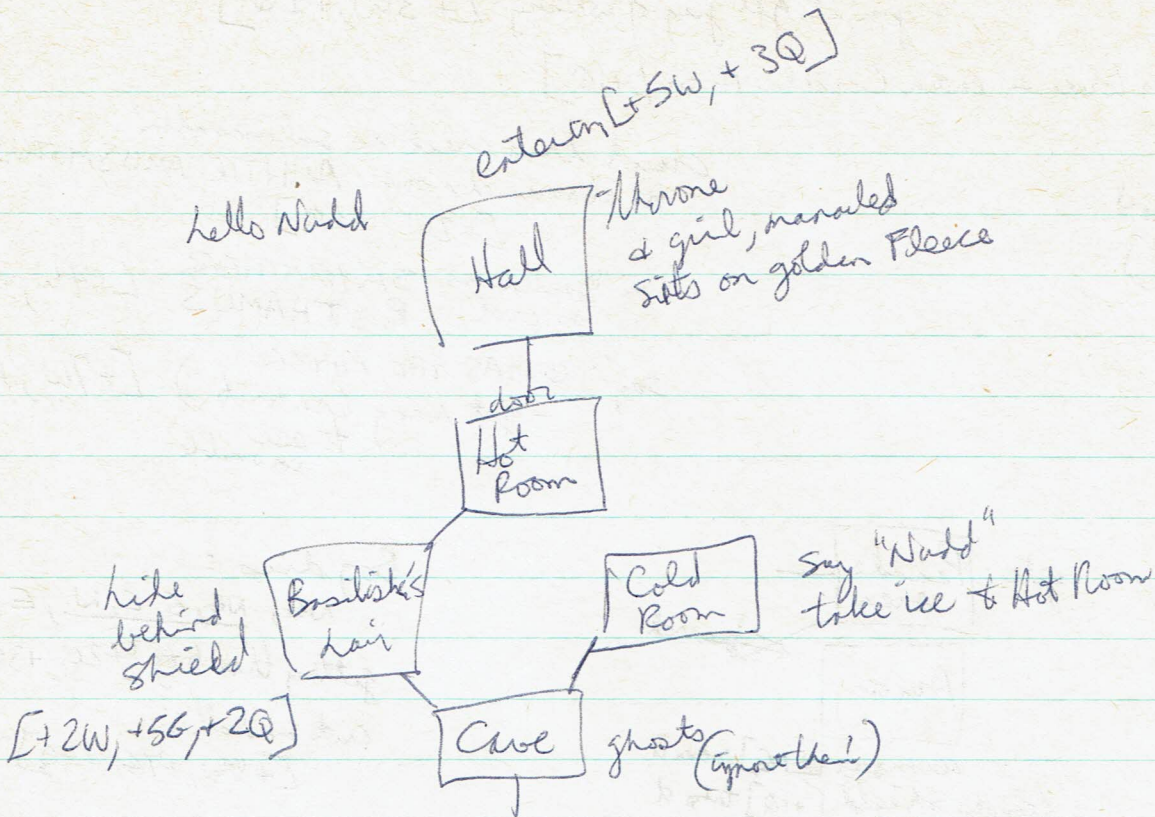 entering [+5W, +3Q]
hello Nudd
Hall
Throne
& girl, manacled
sits on golden Fleece
door
Hot
Room
hide
behind
shield
Basilisk's
Lair
Cold
Room
Say "Nudd"
take ice to Hot Room
[+2W, +5G, +2Q]
Cave
ghosts (ignore them!)